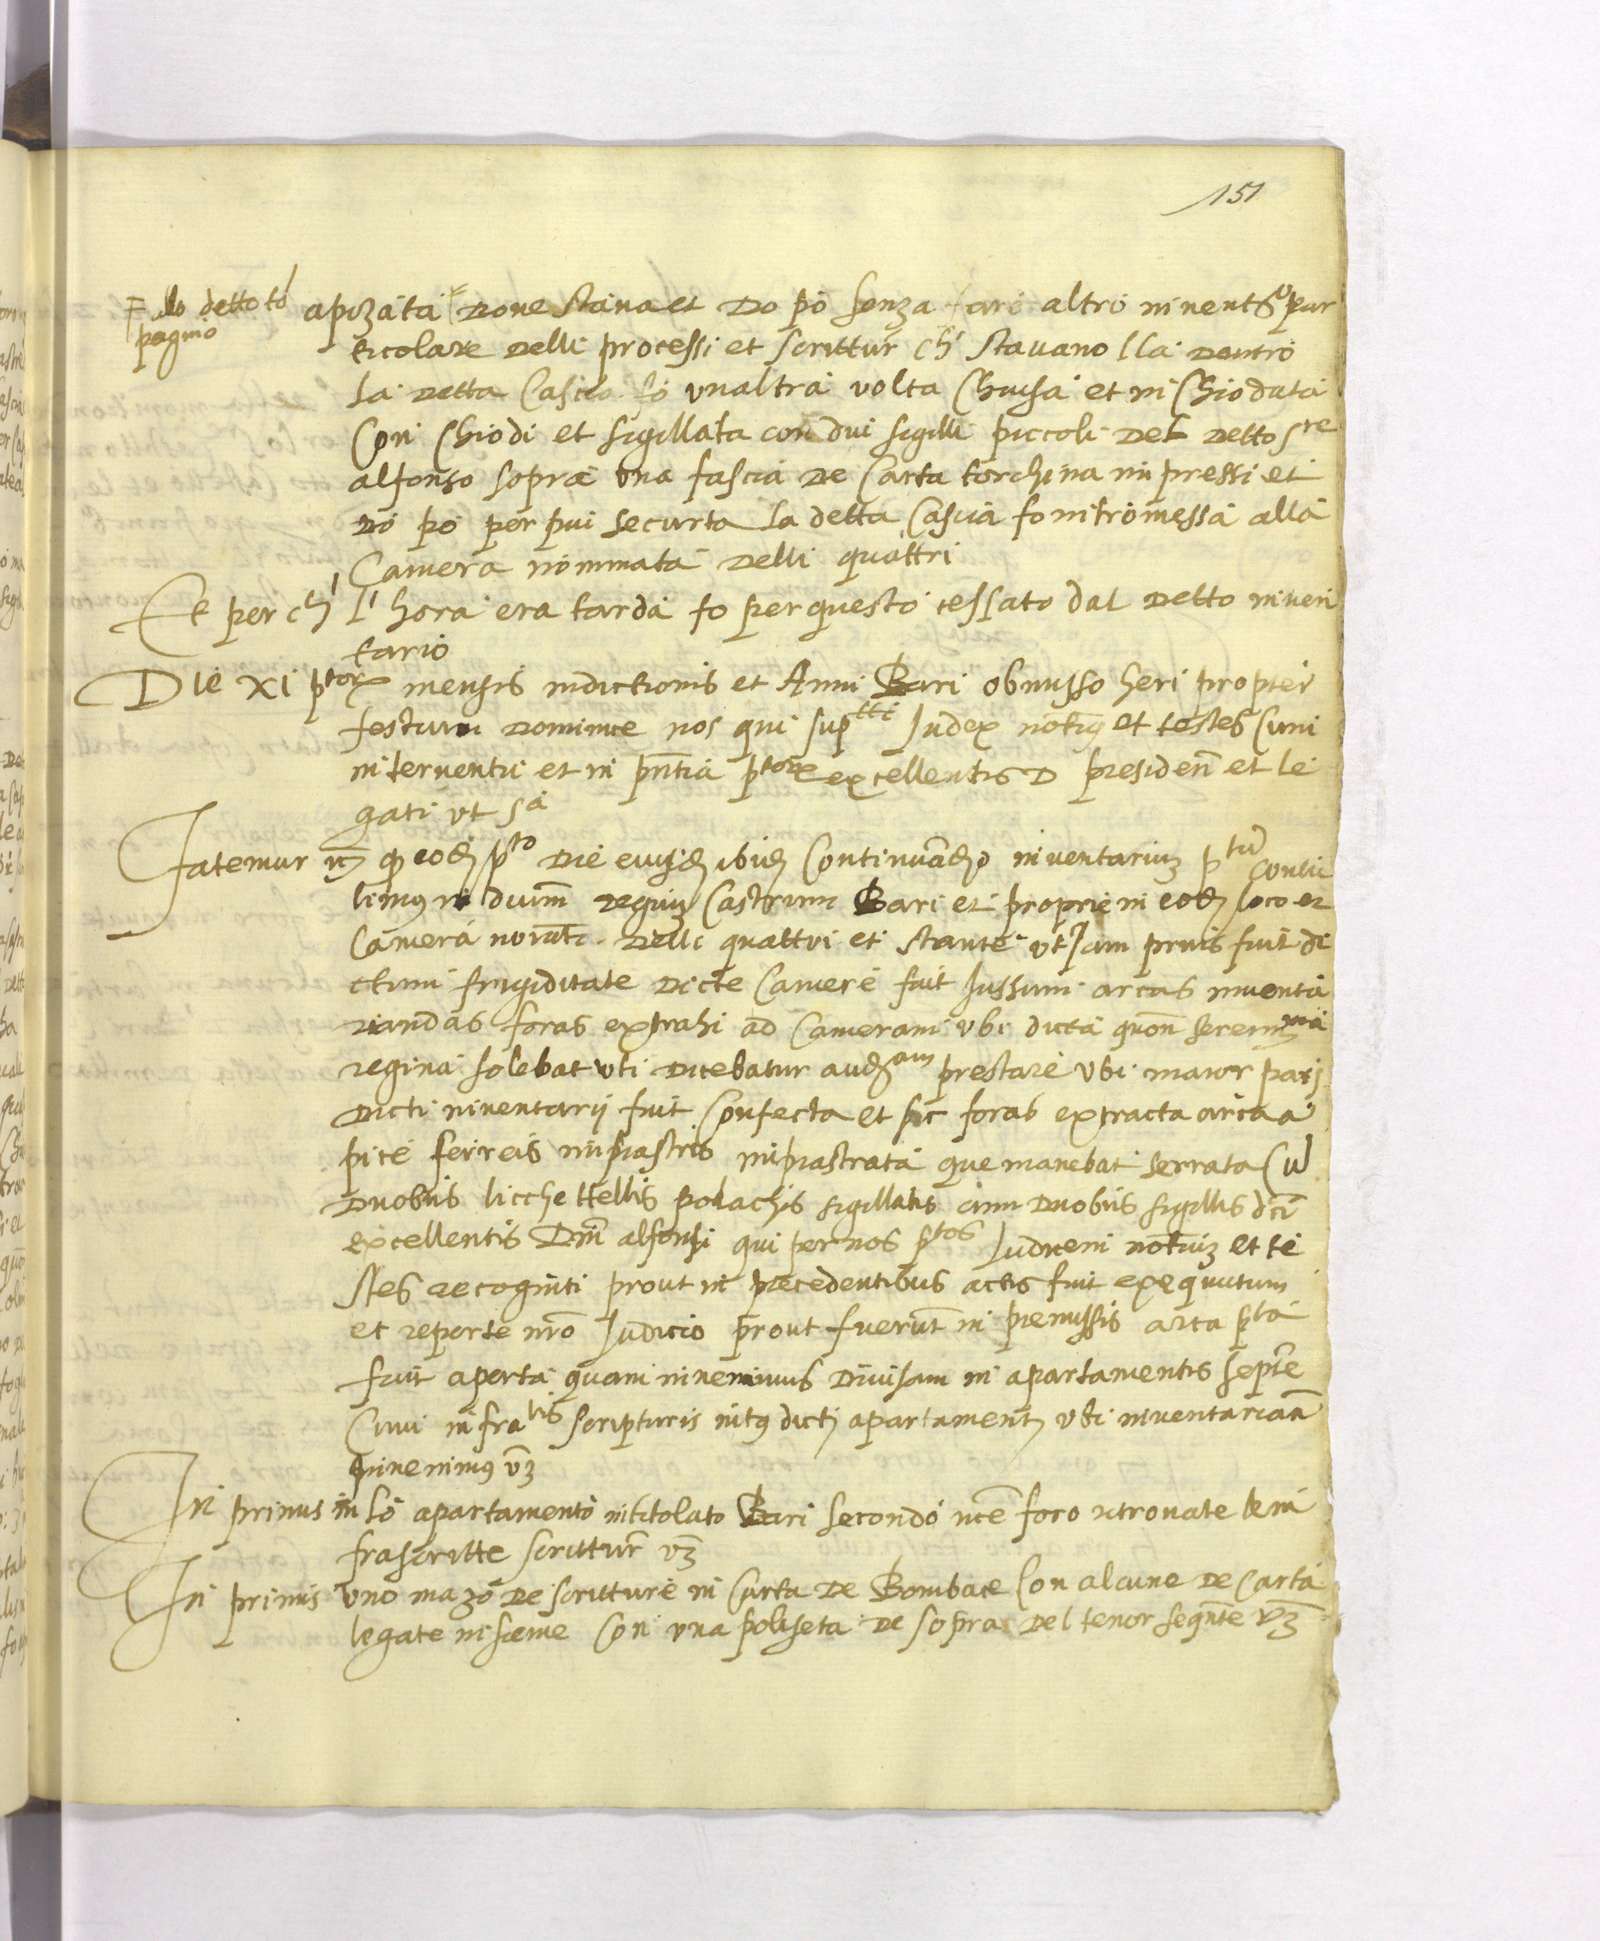 151
allo detto to
pagino
apizata Dove stava et Do pò senza fare altro inventro par
ticolare Delli processi et scrittur ch' stavano lla Dentro
la Detta Cascia fo unaltra volta Chiusa et inChiodata
Con Chiodi et sigillata con dui sigilli piccoli Del Detto Sre
alfonso sopra una fascia De Carta torchina inpressi et
Do pò per piu securta la detta Cascia fo intromessa alla
Camera nominata Delli quattri
Et per ch' l' hora era tarda fo per questo cessato dal Detto inven
tario
Die xi ptorx mensis indictionis et Anni Bari obmisso heri propter
festum Dominice nos qui suptti Iudex notus et testes Cum
interventu et in pntia ptorx excellentis D presiden et le
gati ut sa
Fatemur qd eod pto Die eiusd ibid Continuando inventarium ptum Contu
limus in divm regium Castrum Bari et proprie in eod loco et
Camera noiata Delli quattri et stante ut Iam prius fuit di
ctum frigiditate Dicte Camere fuit Iussum arcas inventa
riandas foras extrahi ad Cameram ubi dicta quon serenma
regina solebat uti Dicebatur audam prestare ubi maior pars
Dicti inventarij fuit Confecta et sic foras extracta arca a
pice ferreis inpiastris inpiastrata que manebat serrata Cu
Duobus licchettellis polachis sigillatis cum Duobus sigillis dci
excellentis Dni alfonsi qui per nos ptos Iudicem notium et te
stes recogniti prout in precedentibus actis fuit exequutum
et reperte nro Iudicio prout fuerunt in premissis arca pta
fuit aperta quam invenimus Divisam in apartamentis septe
Cum infratis scripturis intus dicti apartament ubi inventarian
invenimus vz
In primis in lo apartamento intitolato Bari secondo nce foro ritrovate le in
frascritte scrittur vz
In primis uno mazo De scritture in Carta De Bombace Con alcune De Carta
legate insieme Con una poliseta De sopra Del tenor seqnte vz